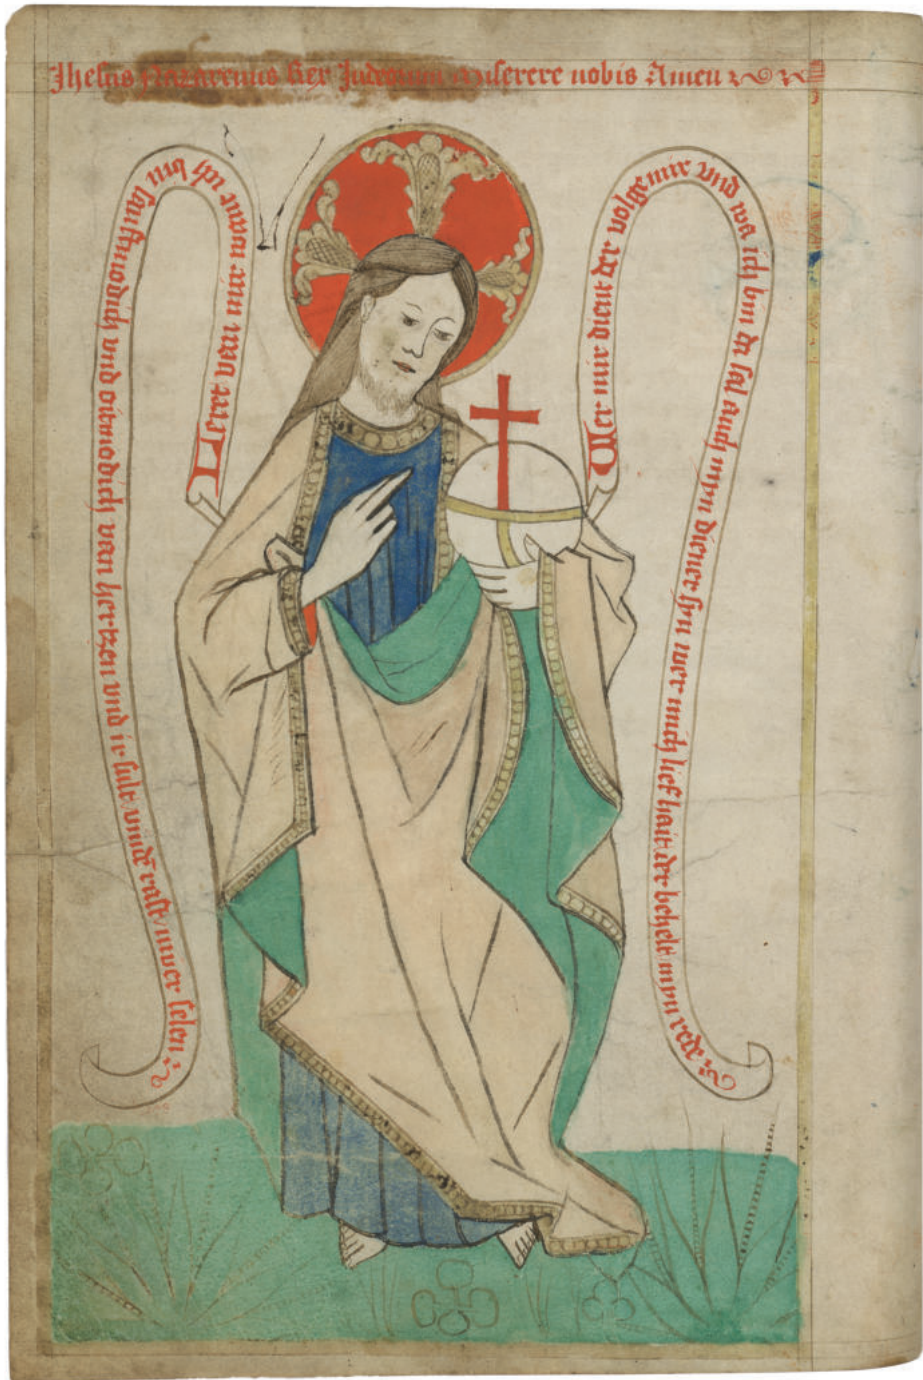 Jhesus Nazarenus Rex Judeorum miserere nobis Amen
Leret van mir want ich bin senfftmodich vnd oitmodich van hertzen vnd ir sult vinden rast uwer selen
Wer mir dient der volge mir vnd wa ich bin da sal auch myn diener syn wer mich lief hait der behelt myn rede